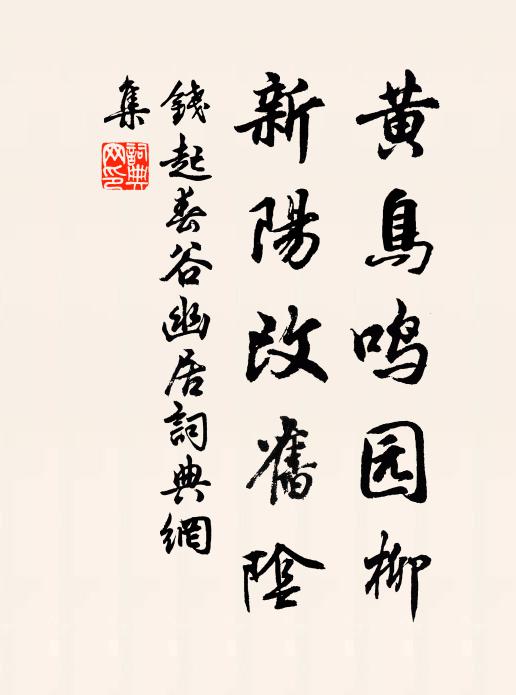 黄鳥鸣园柳
新陽改舊陰
錢起春谷幽居詞典網
集
詞典網印